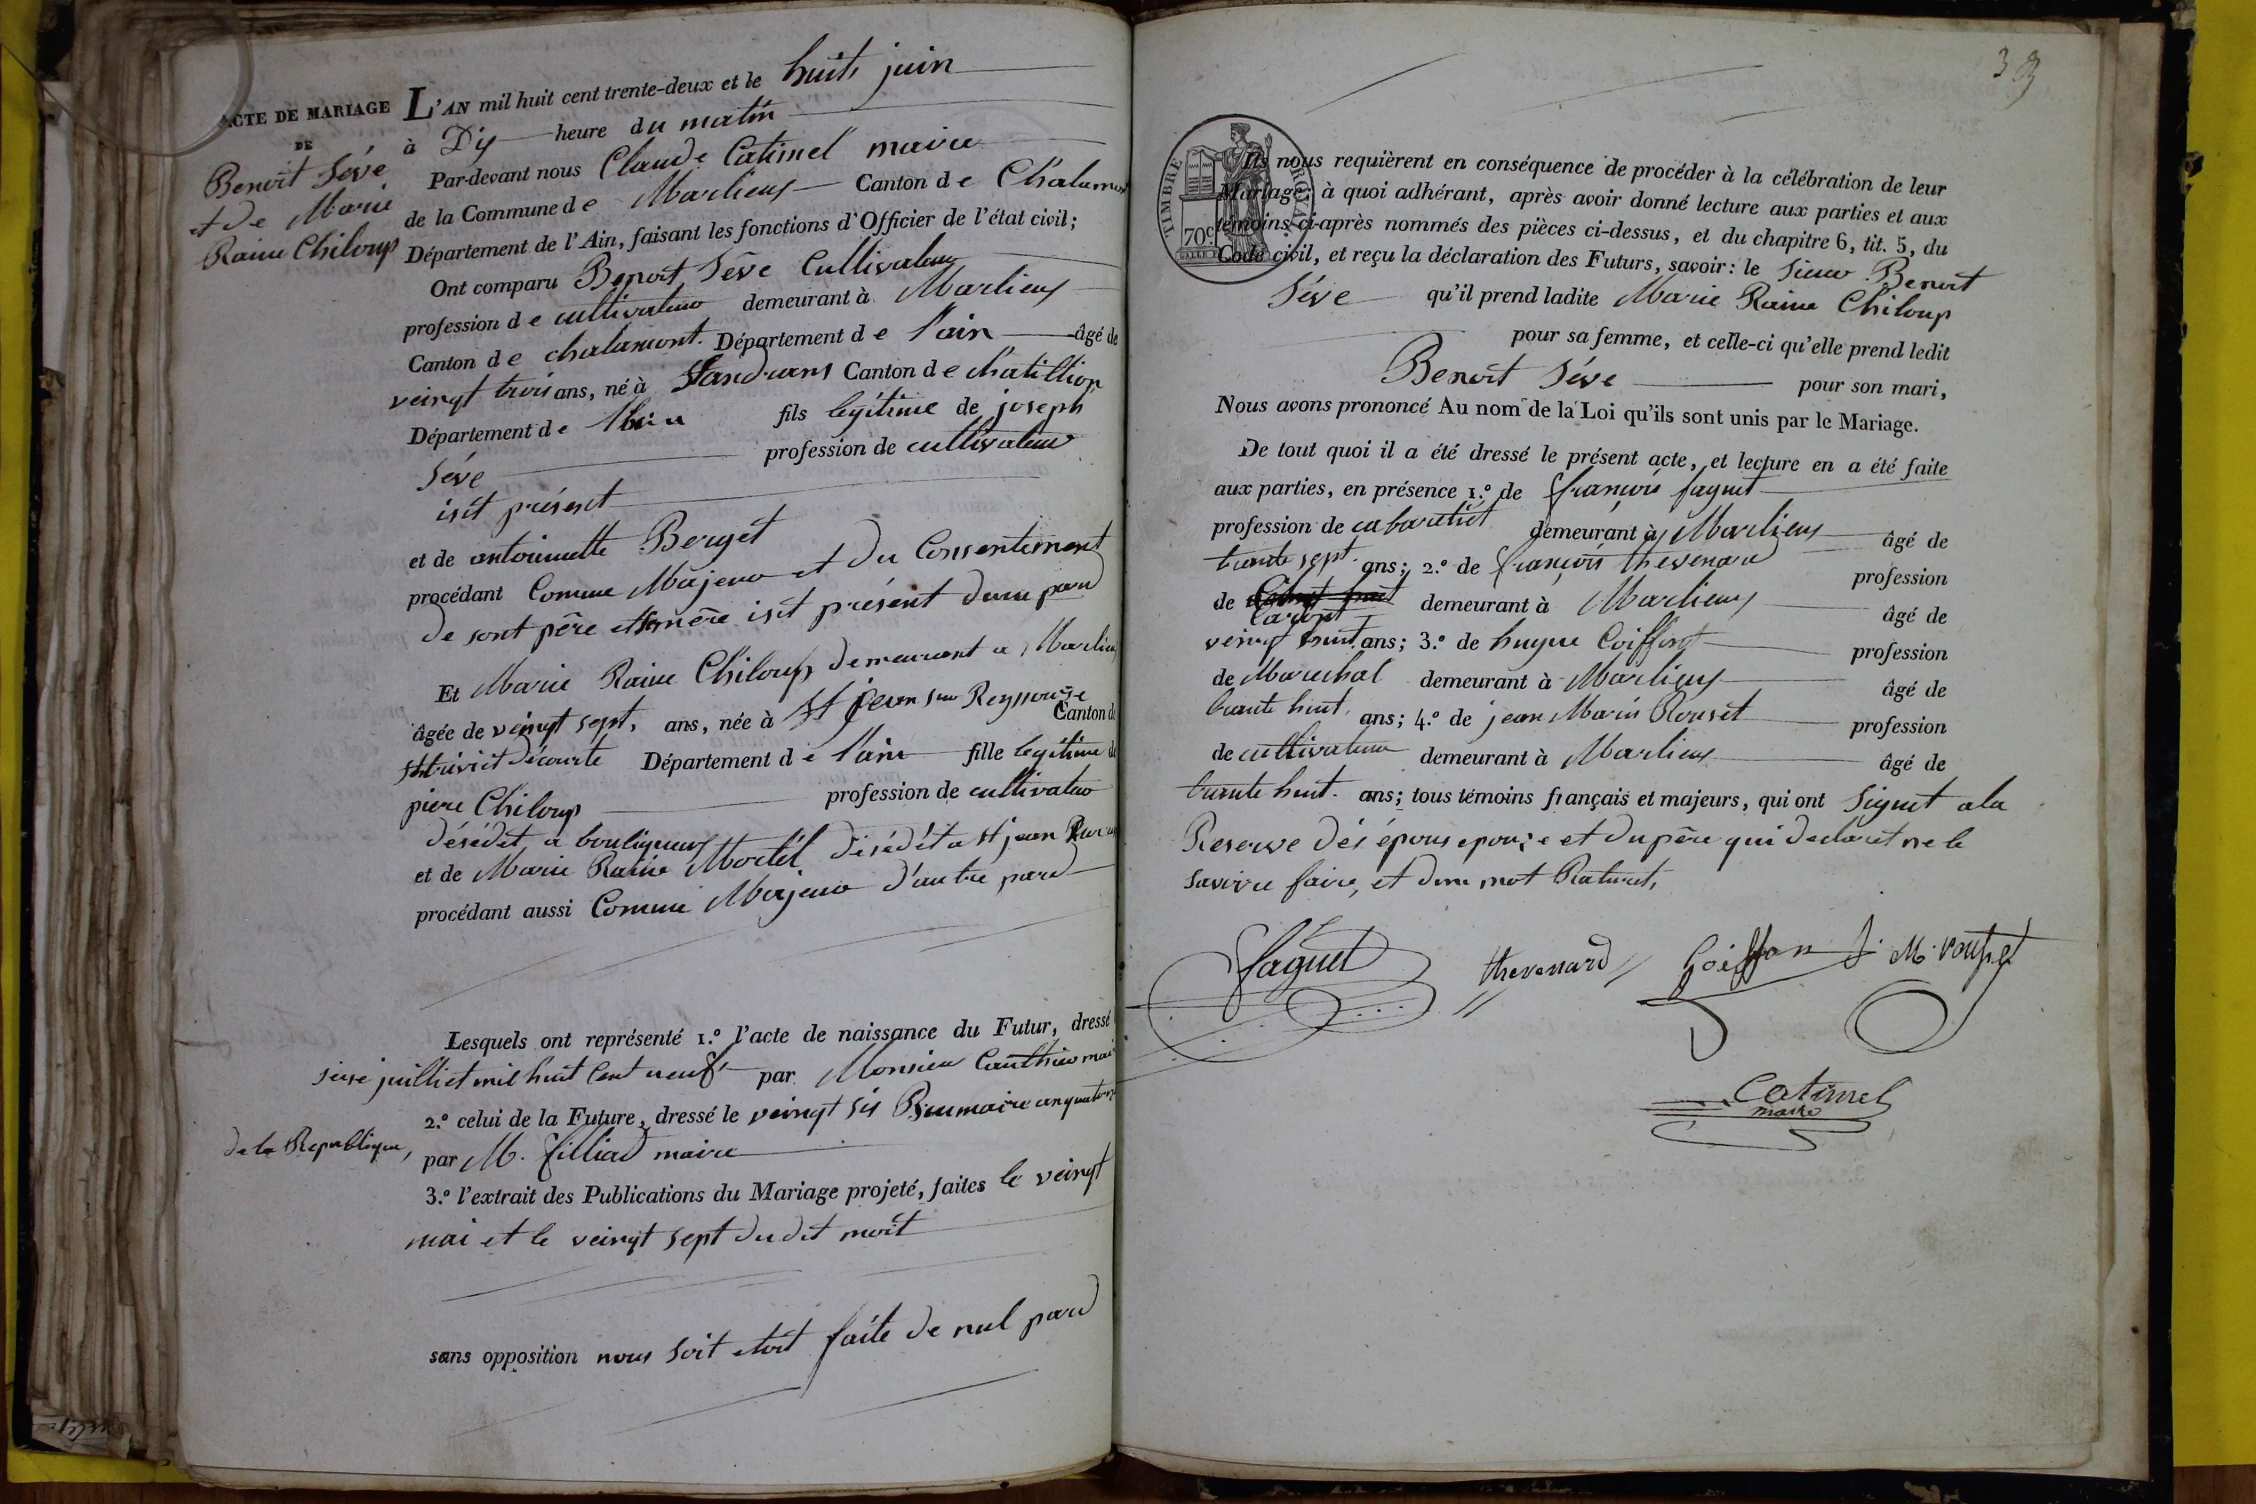 ACTE DE MARIAGE
DE
Benoit Séve
et de Marie
Raine Chiloup
L'AN mil huit cent trente-deux et le huit juin
à Dix heure du matin
Par-devant nous Claude Catimel maire
de la Commune de Marlieux Canton de Chalamont
Département de l'Ain, faisant les fonctions d'Officier de l'état civil;
Ont comparu Benoit Séve Cultivateur
profession de cultivateur demeurant à Marlieux
Canton de chalamont. Département de l'ain âgé de
veingt trois ans, né à Sandrans Canton de chatillion
Département de l'ain fils legitime de joseph
Séve profession de cultivateur
isit présent
et de antoinette Berget
procédant Comme Majeur et du Consentement
de sont père et mère isit présent dune pard
Et Marie Raine Chiloup demeurant a Marlieux
âgée de veingt sept, ans, née à St jean sur Reyssouze Canton de
St trivié de courte Département de l'ain fille legitime de
piere Chiloup profession de cultivateur
désédét a bouligneux
et de Marie Raine Mortél désédét a st jean
procédant aussi Comme Majeur d'autre pard
Lesquels ont représenté 1.º l'acte de naissance du Futur, dressé
seise juilliet mil huit Cent neuf par Monsieur Cauthier maire
2.º celui de la Future, dressé le veingt sis Brumaire an quatorze
de la Republique, par M. filliad maire
3.º l'extrait des Publications du Mariage projeté, faites le veingt
mai et le veingt sept du dit moit
sans opposition nous soit etoit faite de nul pard
33
TIMBRE ROYAL
70c
Ils nous requièrent en conséquence de procéder à la célébration de leur
Mariage; à quoi adhérant, après avoir donné lecture aux parties et aux
témoins ci-après nommés des pièces ci-dessus, et du chapitre 6, tit. 5, du
Code civil, et reçu la déclaration des Futurs, savoir: le Sieur Benoit
Séve qu'il prend ladite Marie Raine Chiloup
pour sa femme, et celle-ci qu'elle prend ledit
Benoit Séve pour son mari,
Nous avons prononcé Au nom de la Loi qu'ils sont unis par le Mariage.
De tout quoi il a été dressé le présent acte, et lecture en a été faite
aux parties, en présence 1.º de françois faguet
profession de cabaretiét demeurant à Marlieux âgé de
trente sept ans; 2.º de françois thevenard profession
de demeurant à Marlieux âgé de
veingt huit ans; 3.º de hugue Coiffont profession
de Marechal demeurant à Marlieux âgé de
trente huit ans; 4.º de jean Marie Rouset profession
de cultivateur demeurant à Marlieux âgé de
trente huit. ans; tous témoins français et majeurs, qui ont Signet ala
Reserve dés épous epouse et du père qui declaret ne le
savoire faire, et dun mot Raturet,
faguet
thevenard
Coiffon
J. M. rouset
Catimel
maire